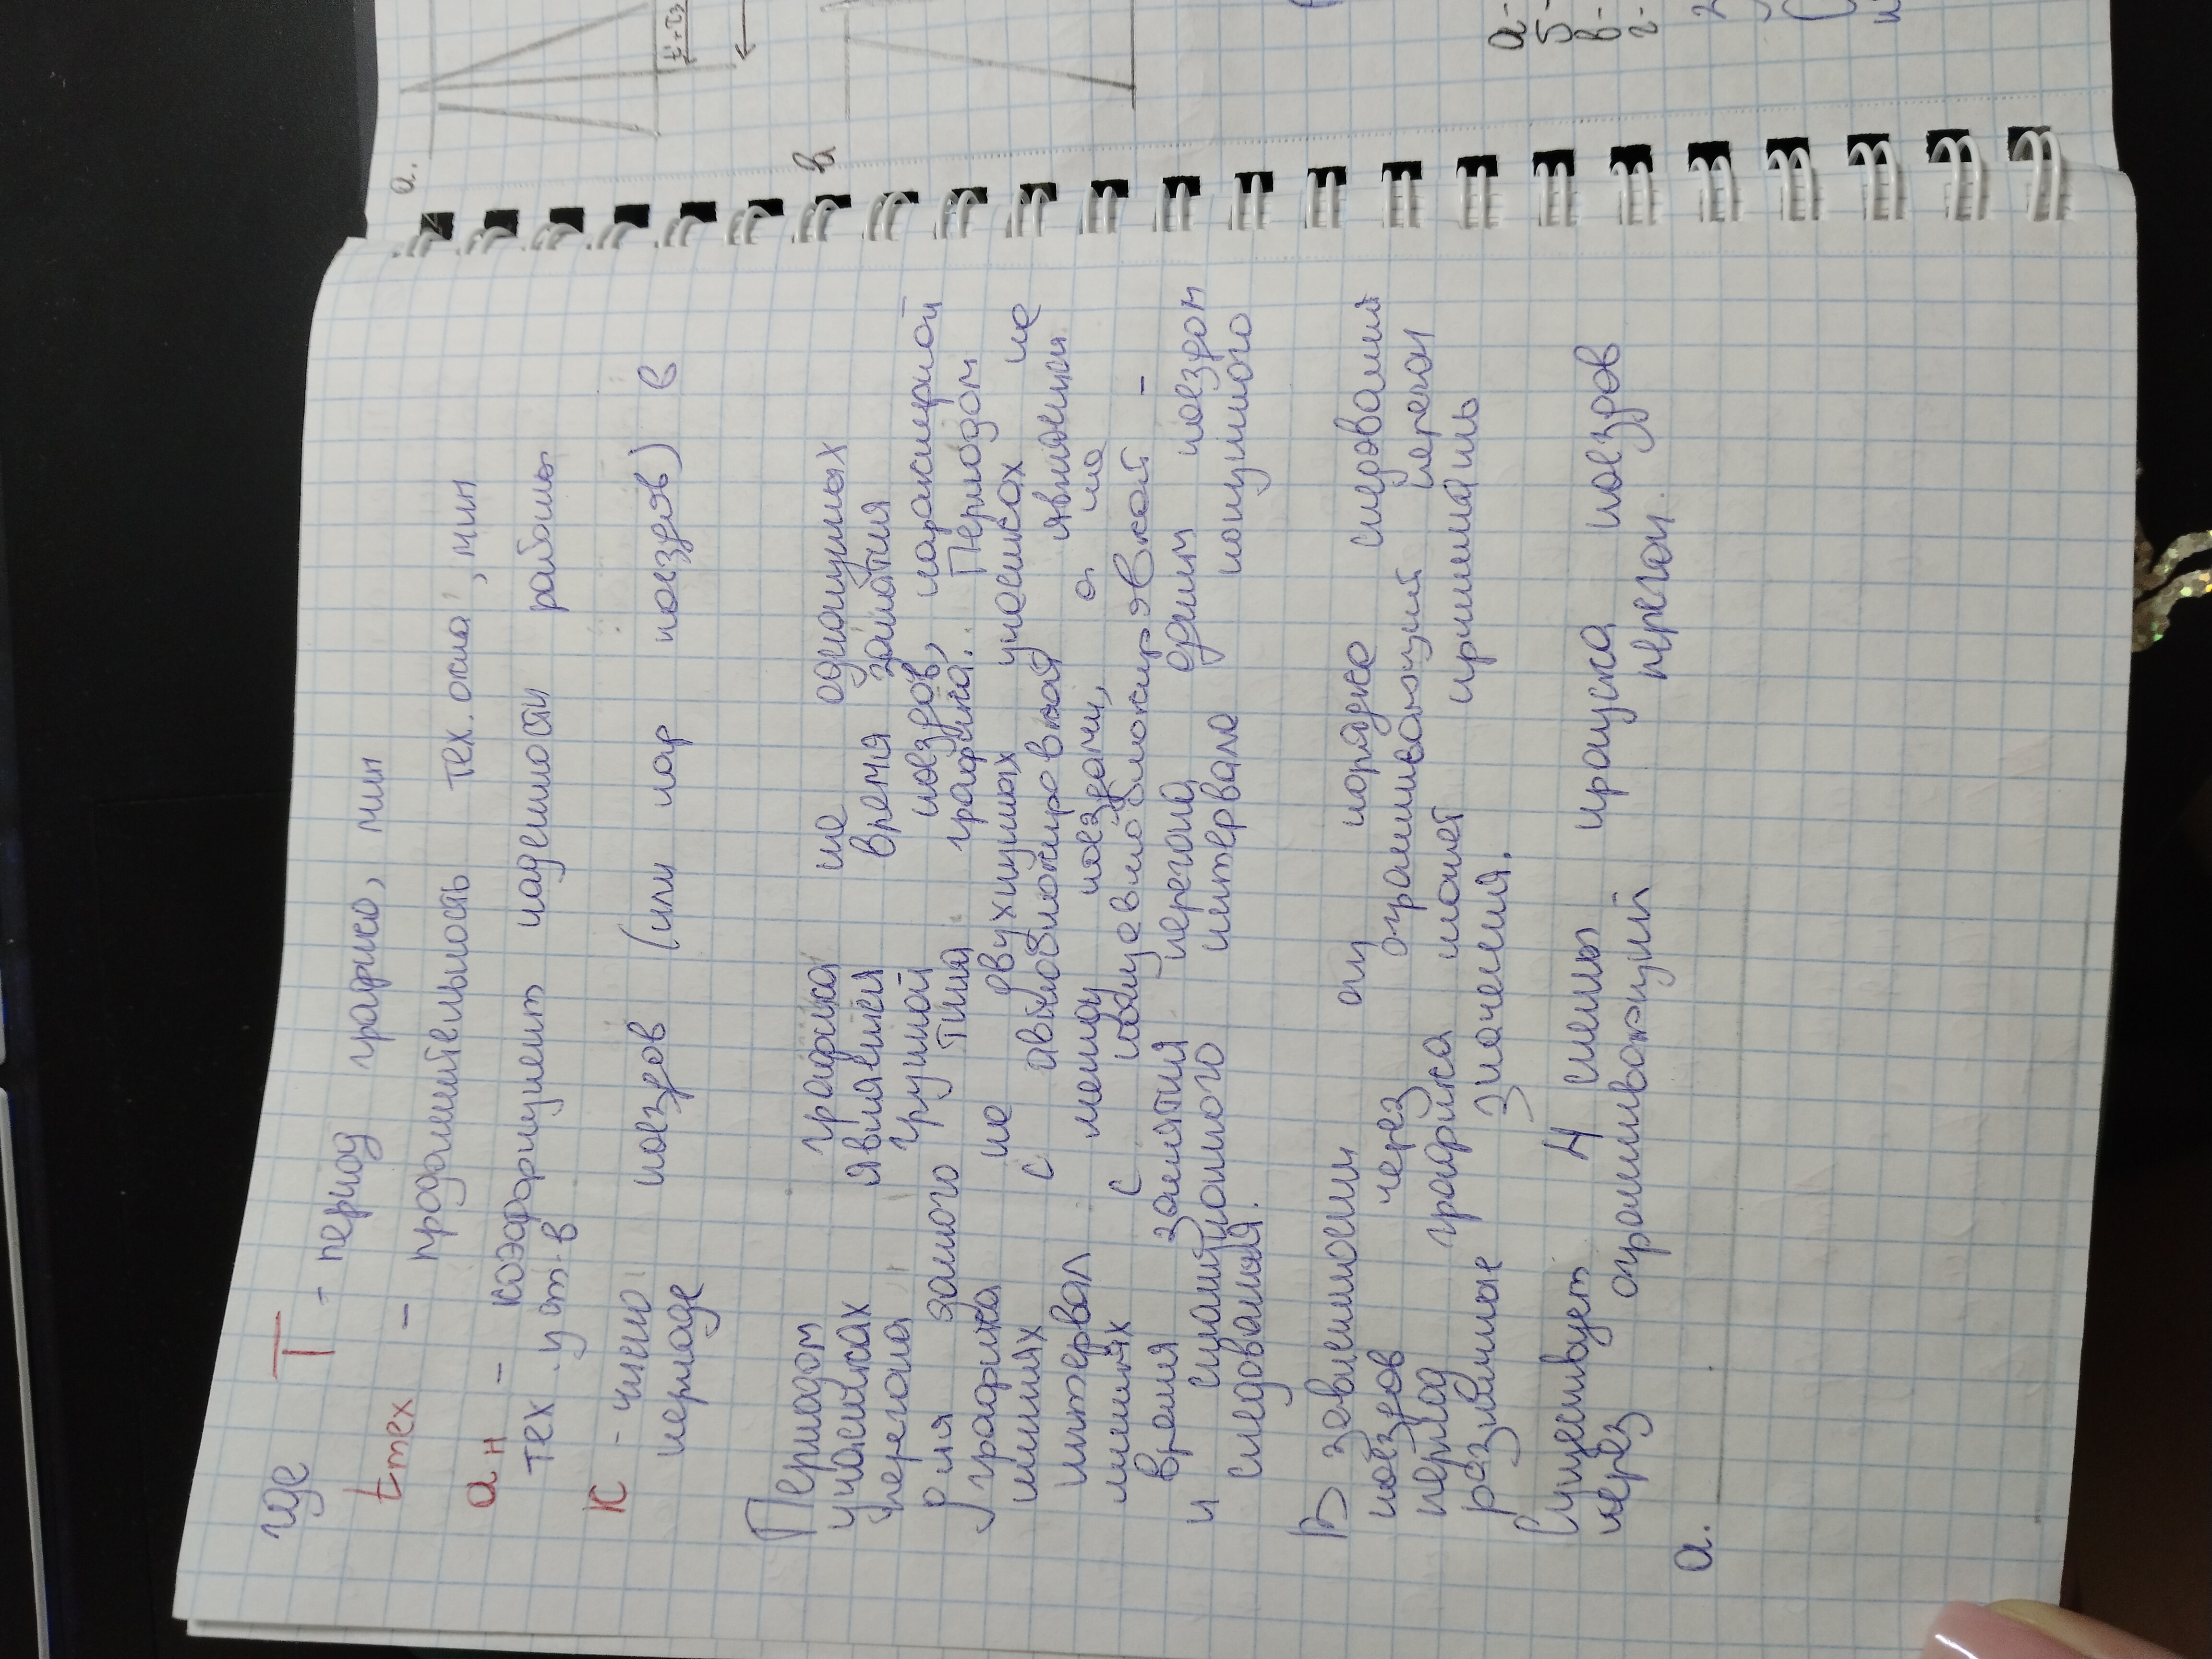 где Т - период графика, мин
tтех - продолжительность тех. окна, мин
αн - коэффициент надежности работы
тех. уст-в
К - число поездов (или пар поездов) в
периоде
Периодом графика на однопутных
участках является время занятия
перегона группой поездов, характерной
для данного типа графика. Периодом
графика на двухпутных участках не
линиях с автоблокировкой является
интервал между поездами, а на
линиях с полуавтоблокировкой -
время занятия перегона одним поездом
и станционного интервала попутного
следования.
В зависимости от порядка следования
поездов через ограничивающий перегон
период графика может принимать
различные значения.
Существует 4 схемы пропуска поездов
через ограничивающий перегон.
а.
а.
в
а-
б-
в-
г-